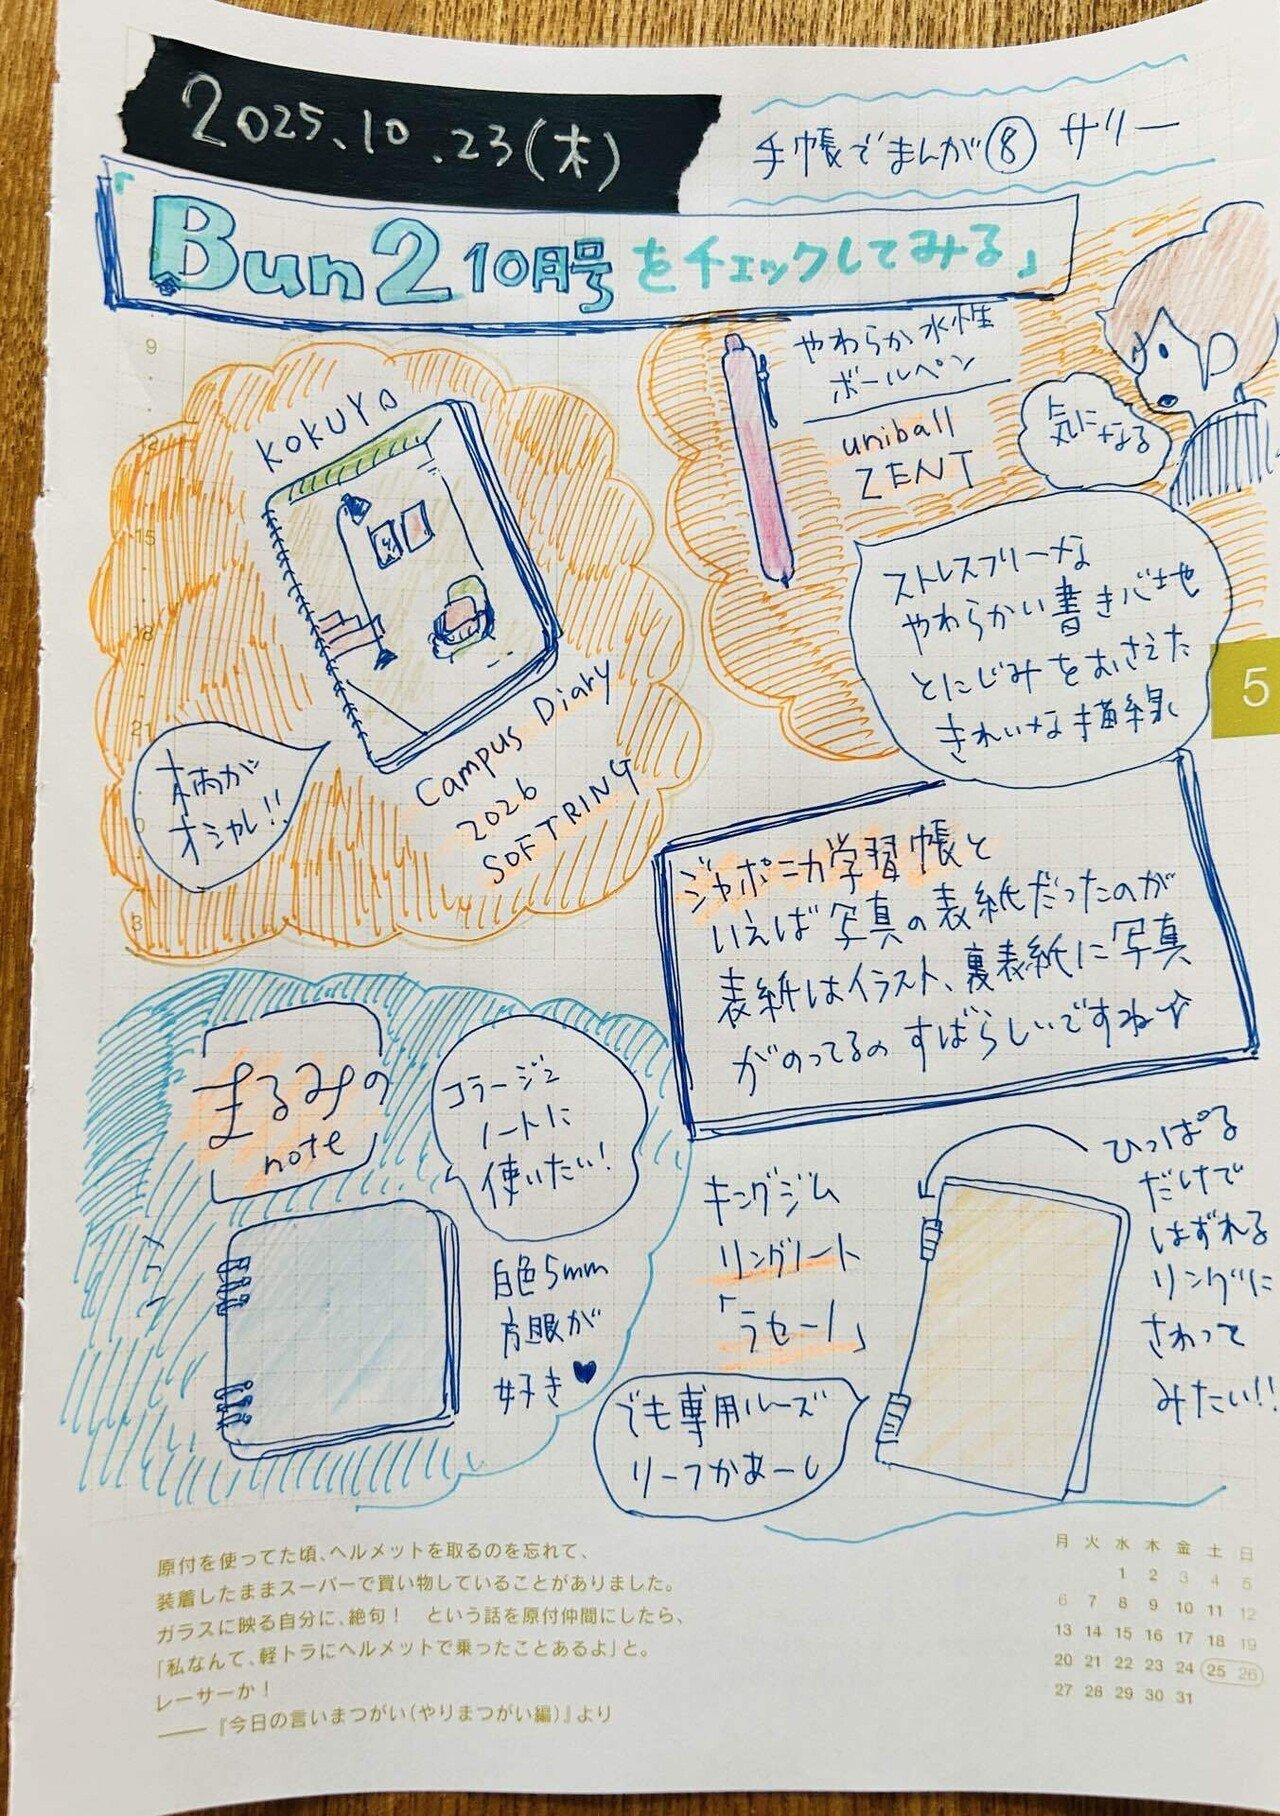 2025.10.23(木)
手帳でまんが⑧ サリー
「Bun2 10月号をチェックしてみる」
9
12
15
18
21
3
KOKUYO
Campus Diary
2026
SOFTRING
柄が
オシャレ!!
やわらか水性
ボールペン
uniball
ZENT
気に
なる
ストレスフリーな
やわらかい書き心地
とにじみをおさえた
きれいな描線
5
ジャポニカ学習帳と
いえば写真の表紙だったのが
表紙はイラスト、裏表紙に写真
がのってるのすばらしいですね☆
まるみの
note
コラージュ
ノートに
使いたい!
白色5mm
方眼が
好き♥
キングジム
リングノート
「ラセーノ」
ひっぱる
だけで
はずれる
リングに
さわって
みたい!!
でも専用ルーズ
リーフかぁーし
原付を使ってた頃、ヘルメットを取るのを忘れて、
装着したままスーパーで買い物していることがありました。
ガラスに映る自分に、絶句！　という話を原付仲間にしたら、
「私なんて、軽トラにヘルメットで乗ったことあるよ」と。
レーサーか！
——『今日の言いまつがい(やりまつがい編)』より
月 火 水 木 金 土 日
1 2 3 4 5
6 7 8 9 10 11 12
13 14 15 16 17 18 19
20 21 22 23 24 25 26
27 28 29 30 31